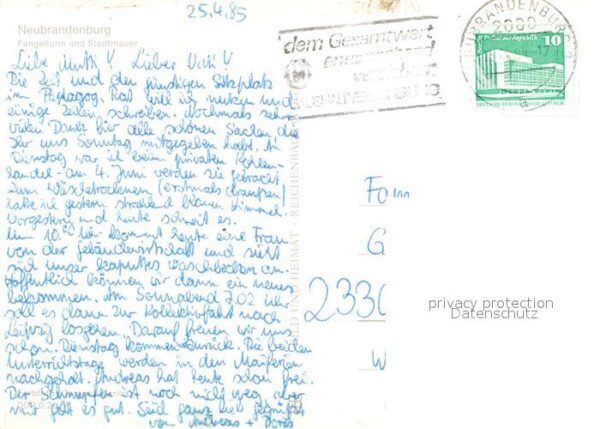 25.4.85
Neubrandenburg
Fangelturm und Stadtmauer
Liebe Mutti V Lieber Vati V
Die Zeit und den günstigen Sitzplatz
im Pädagog. Rat will ich nutzen und
einige Zeilen schreiben. Nochmals sehr
vielen Dank für alle schönen Sachen die
Ihr uns Sonntag mitgegeben habt. Am
Dienstag war ich beim privaten Kohlen-
handel - am 4. Juni werden sie gebracht
Zum Wäschetrocknen (erstmals draußen)
hatte ich gestern strahlend blauen Himmel.
Vorgestern und heute schneit es.
Um 10.00 Uhr kommt heute eine Frau
von der Gebäudewirtschaft und sieht
sich unser kaputtes Waschbecken an.
Hoffentlich können wir dann ein neues
bekommen. Am Sonnabend 7.02 Uhr
soll es dann zur Kollektivfahrt nach
Leipzig losgehen. Darauf freuen wir uns
schon. Dienstag kommen zurück. Die beiden
Unterrichtstage werden in den Maiferien
nachgeholt. Andreas hat heute schon frei.
Der Schnupfen ist noch nicht weg, aber
mir geht es gut. Seid ganz lieb gegrüßt
von Andreas + Doris
BILD UND HEIMAT REICHENBACH
dem Gesamtwert
entsprechend
versichern
HAUSHALTVERSICHERUNG
NEUBRANDENBURG
2000
10
Palast der Republik
Fam
G
2330
W
privacy protection
Datenschutz